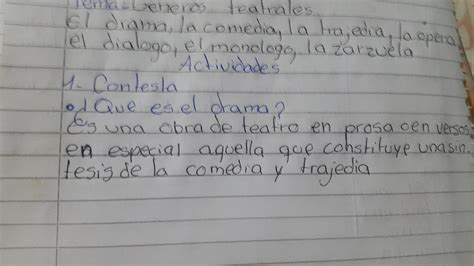 Tema: Generos teatrales
El drama, la comedia, la trajedia, la opera,
el dialogo, el monologo, la zarzuela
Actividades
1- Contesta
a) Que es el drama?
Es una obra de teatro en prosa o en verso:
en especial aquella que constituye una sin.
tesis de la comedia y trajedia